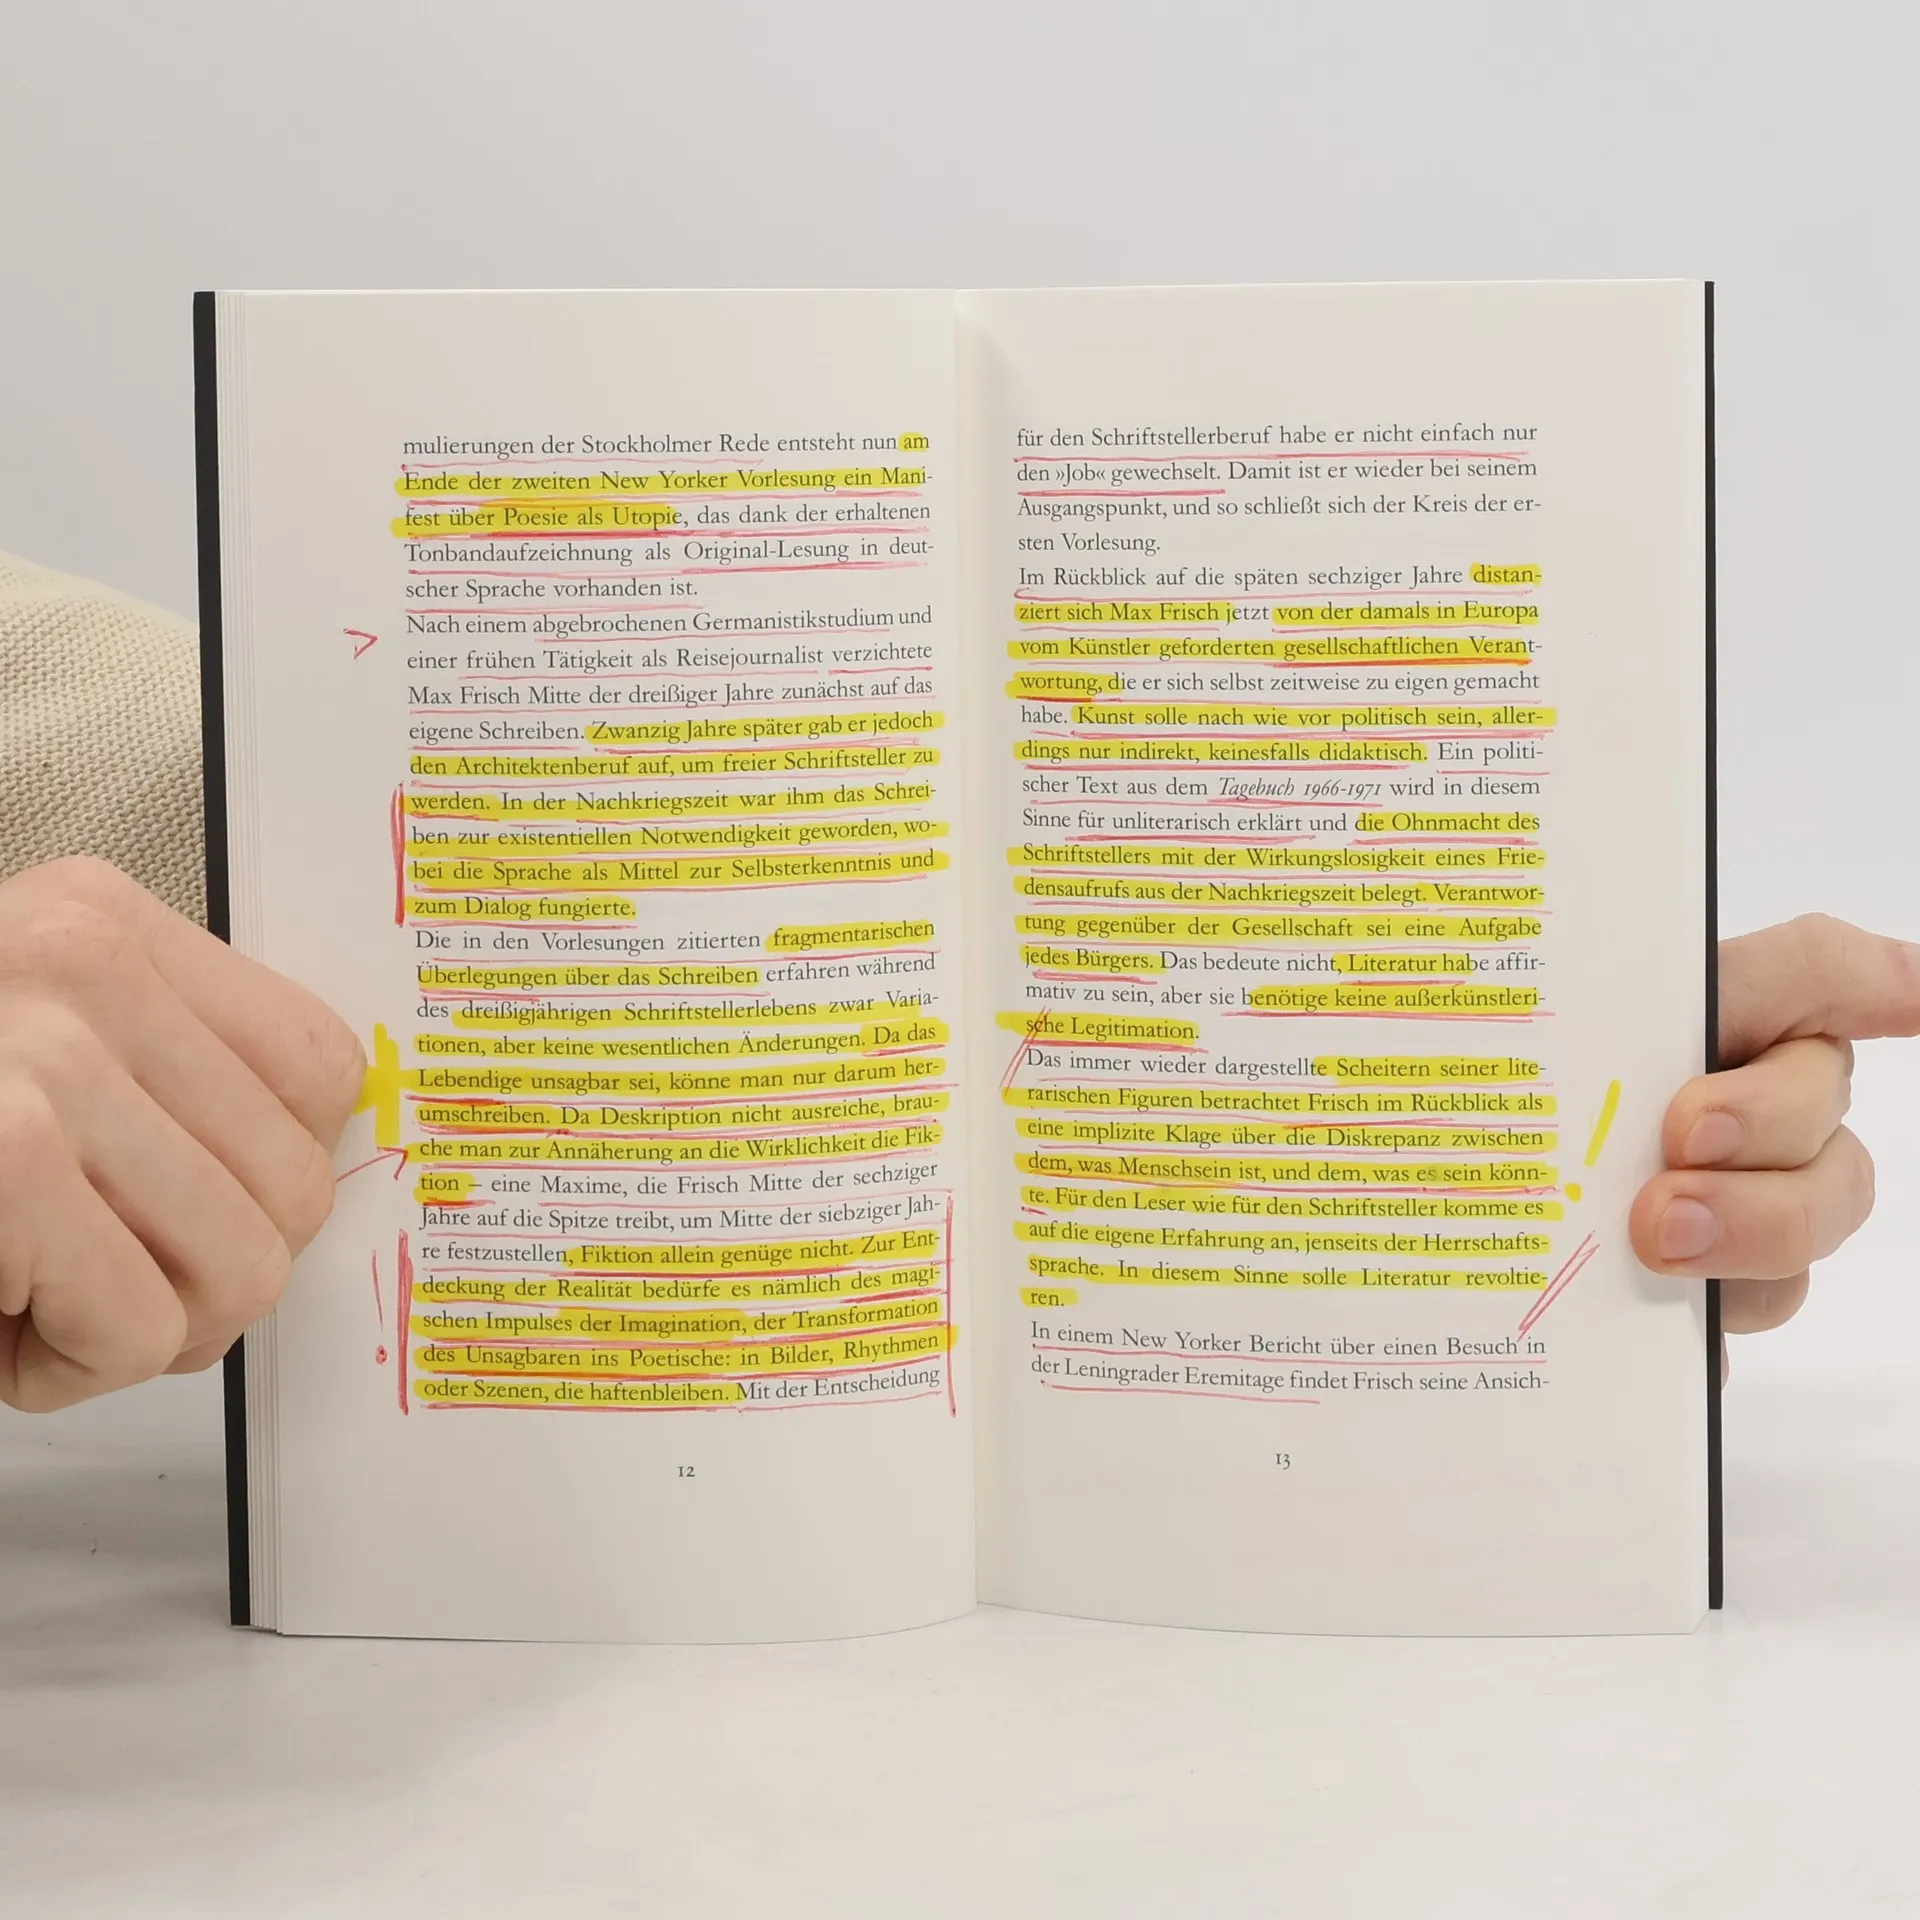 mulierungen der Stockholmer Rede entsteht nun am
Ende der zweiten New Yorker Vorlesung ein Mani-
fest über Poesie als Utopie, das dank der erhaltenen
Tonbandaufzeichnung als Original-Lesung in deut-
scher Sprache vorhanden ist.
Nach einem abgebrochenen Germanistikstudium und
einer frühen Tätigkeit als Reisejournalist verzichtete
Max Frisch Mitte der dreißiger Jahre zunächst auf das
eigene Schreiben. Zwanzig Jahre später gab er jedoch
den Architektenberuf auf, um freier Schriftsteller zu
werden. In der Nachkriegszeit war ihm das Schrei-
ben zur existentiellen Notwendigkeit geworden, wo-
bei die Sprache als Mittel zur Selbsterkenntnis und
zum Dialog fungierte.
Die in den Vorlesungen zitierten fragmentarischen
Überlegungen über das Schreiben erfahren während
des dreißigjährigen Schriftstellerlebens zwar Varia-
tionen, aber keine wesentlichen Änderungen. Da das
Lebendige unsagbar sei, könne man nur darum her-
umschreiben. Da Deskription nicht ausreiche, brau-
che man zur Annäherung an die Wirklichkeit die Fik-
tion – eine Maxime, die Frisch Mitte der sechziger
Jahre auf die Spitze treibt, um Mitte der siebziger Jah-
re festzustellen, Fiktion allein genüge nicht. Zur Ent-
deckung der Realität bedürfe es nämlich des magi-
schen Impulses der Imagination, der Transformation
des Unsagbaren ins Poetische: in Bilder, Rhythmen
oder Szenen, die haftenbleiben. Mit der Entscheidung
12
für den Schriftstellerberuf habe er nicht einfach nur
den »Job« gewechselt. Damit ist er wieder bei seinem
Ausgangspunkt, und so schließt sich der Kreis der er-
sten Vorlesung.
Im Rückblick auf die späten sechziger Jahre distan-
ziert sich Max Frisch jetzt von der damals in Europa
vom Künstler geforderten gesellschaftlichen Verant-
wortung, die er sich selbst zeitweise zu eigen gemacht
habe. Kunst solle nach wie vor politisch sein, aller-
dings nur indirekt, keinesfalls didaktisch. Ein politi-
scher Text aus dem Tagebuch 1966-1971 wird in diesem
Sinne für unliterarisch erklärt und die Ohnmacht des
Schriftstellers mit der Wirkungslosigkeit eines Frie-
densaufrufs aus der Nachkriegszeit belegt. Verantwor-
tung gegenüber der Gesellschaft sei eine Aufgabe
jedes Bürgers. Das bedeute nicht, Literatur habe affir-
mativ zu sein, aber sie benötige keine außerkünstleri-
sche Legitimation.
Das immer wieder dargestellte Scheitern seiner lite-
rarischen Figuren betrachtet Frisch im Rückblick als
eine implizite Klage über die Diskrepanz zwischen
dem, was Menschsein ist, und dem, was es sein könn-
te. Für den Leser wie für den Schriftsteller komme es
auf die eigene Erfahrung an, jenseits der Herrschafts-
sprache. In diesem Sinne solle Literatur revoltie-
ren.
In einem New Yorker Bericht über einen Besuch in
der Leningrader Eremitage findet Frisch seine Ansich-
13